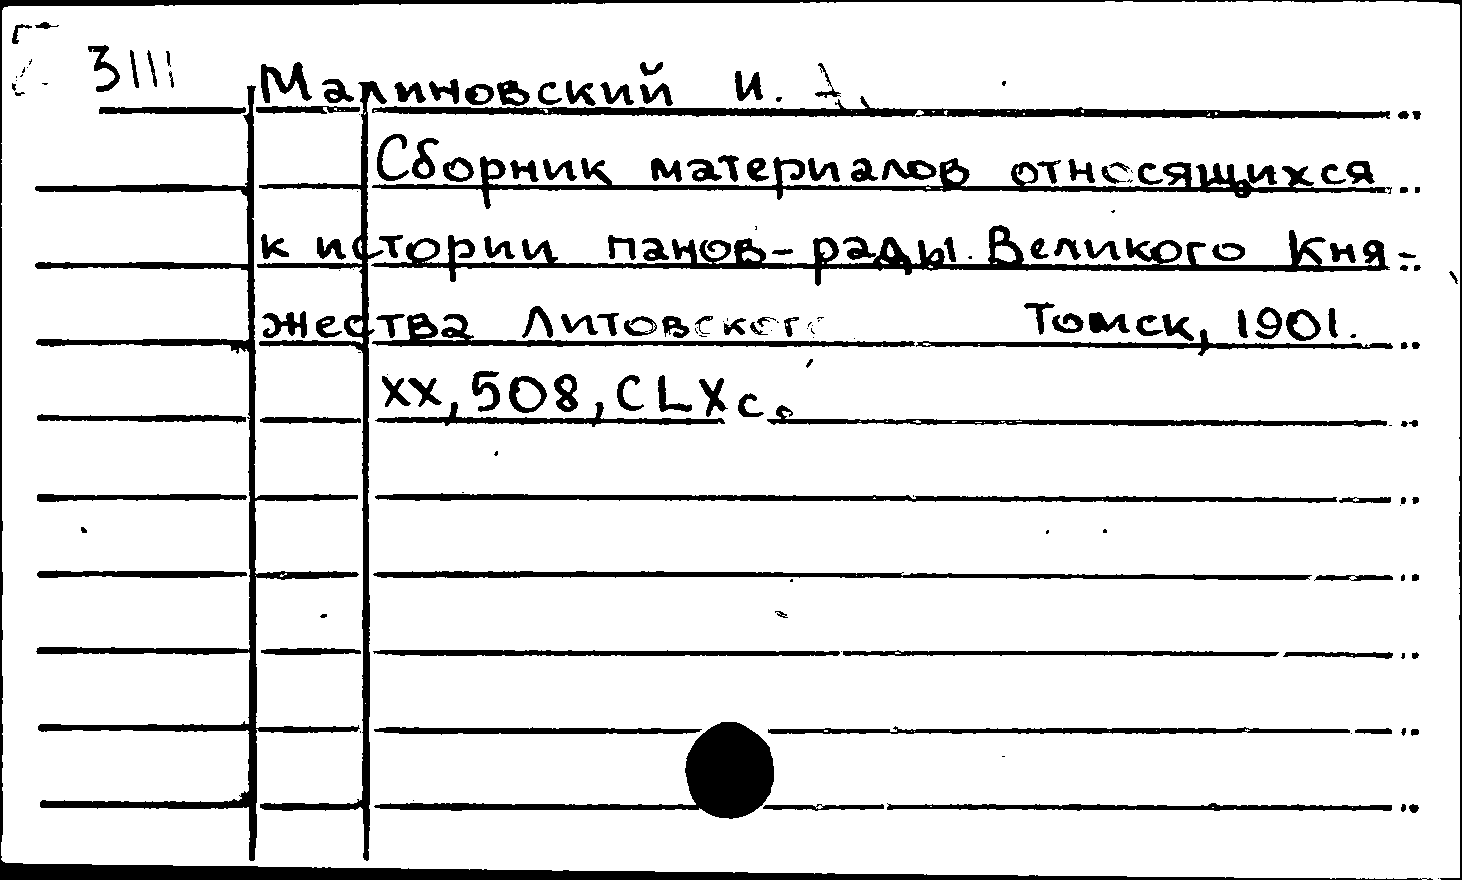 3III
Малиновский И. А.
Сборник материалов относящихся
к истории панов-рады Великого Кня-
жества Литовского Томск, 1901.
XX, 508, CLX с.